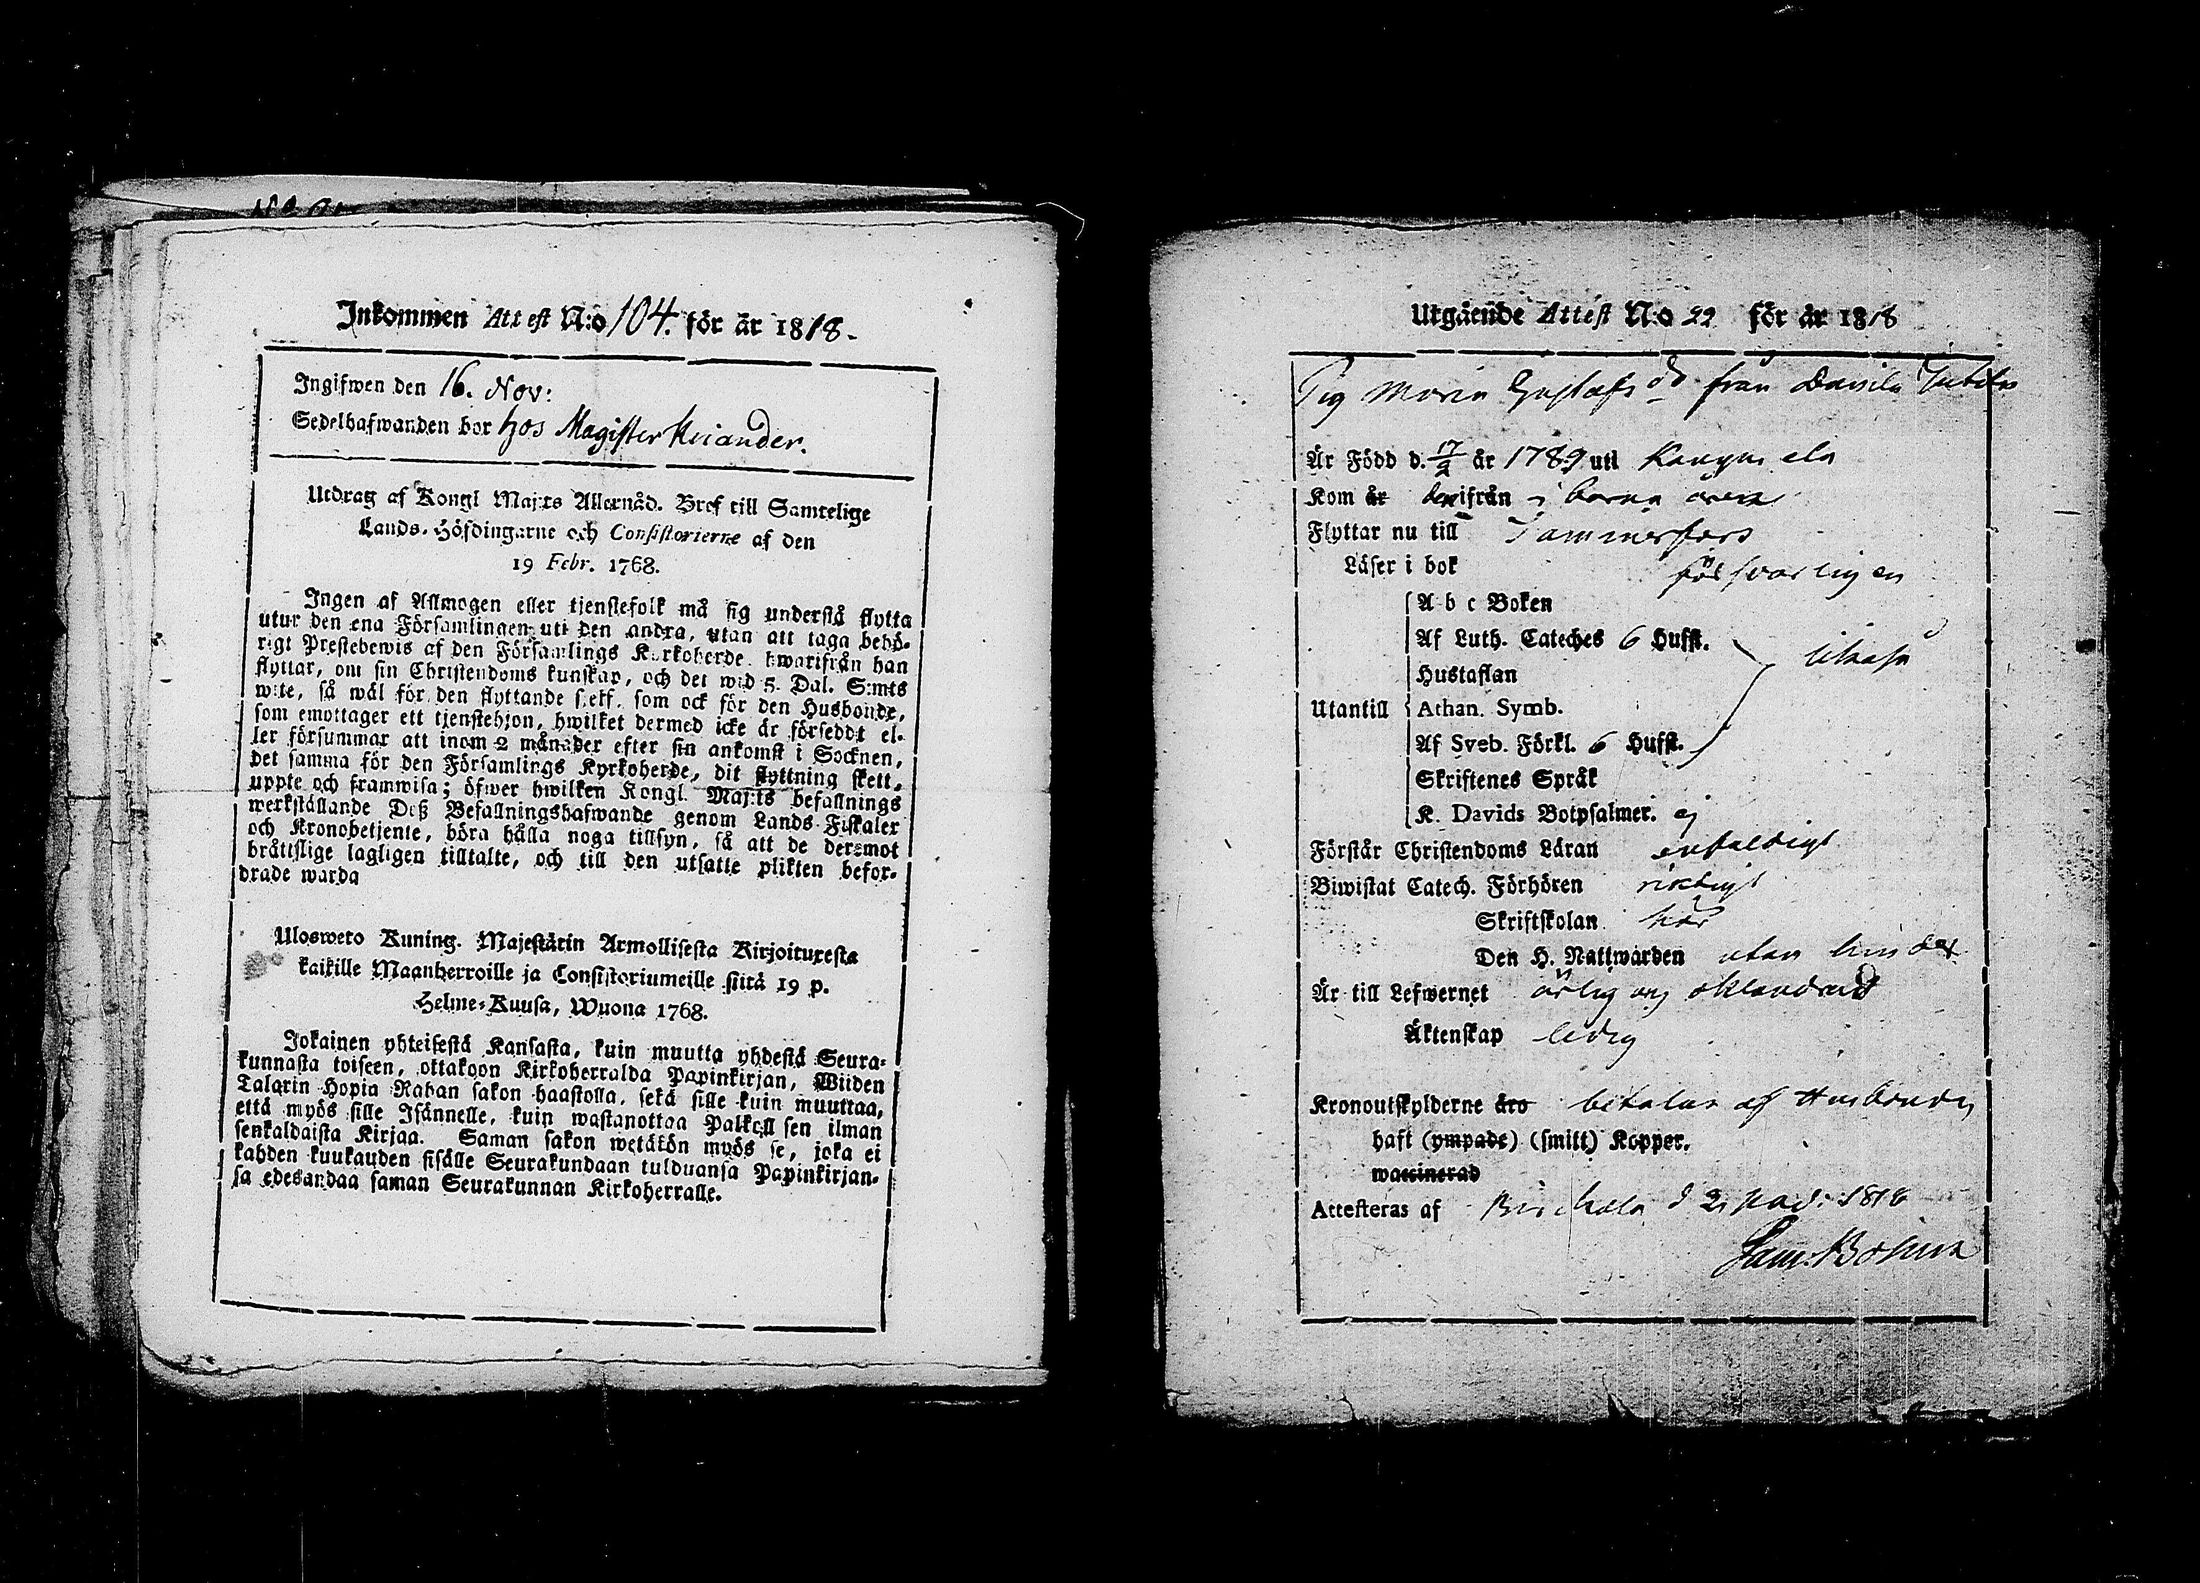 Inkommen Attest N:o 104. för år 1818.
Ingifwen den 16. Nov:
Sedelhafwanden bor hos Magister Kiander.
Utdrag af Kongl Maj:ts Allernåd. Bref till Samtelige
Lands-Höfdingarne och Consistorierne af den
19 Febr. 1768.
Ingen af Allmogen eller tjenstefolk må sig understå flytta
utur den ena Församlingen uti den andra, utan att taga behö-
rigt Prestebewis af den Församlings Kyrkoherde, hwarifrån han
flyttar, om sin Christendoms kunskap, och det wid 5. Dal. S:mts
wite, så wäl för den flyttande sjelf, som ock för den Husbonde,
som emottager ett tjenstehjon, hwilket dermed icke är försedt el-
ler försummar att inom 2 månader efter sin ankomst i Socknen,
det samma för den Församlings Kyrkoherde, dit flyttning skett,
uppte och framwisa; öfwer hwilken Kongl. Maj:ts befallnings
werkställande Deß Befallningshafwande genom Lands Fiskaler
och Kronobetjente, böra hålla noga tillsyn, så att de deremot
bråttslige lagligen tilltalte, och till den utsatte plikten befor-
drade warda
Ulosweto Kuning. Majestätin Armollisesta Kirjoituxesta
kaikille Maanherroille ja Consistoriumeille siitä 19 p.
Helme-Kuusa, Wuona 1768.
Jokainen yhteisestä Kansasta, kuin muutta yhdestä Seura-
kunnasta toiseen, ottakoon Kirkoherralda Papinkirjan, Wiiden
Talarin Hopia Rahan sakon haastolla, sekä sille kuin muuttaa,
että myös sille Isännelle, kuin wastanottaa Palkoll sen ilman
senkaldaista Kirjaa. Saman sakon wetäkön myös se, joka ei
kahden kuukauden sisälle Seurakundaan tulduansa Papinkirjan-
sa edesandaa saman Seurakunnan Kirkoherralle.
Utgående Attest N:o 22 för år 1818
Pig Maria Gustafs dr från Daniels
Är Född d. 17/9 år 1789 uti Kangasala
Kom år derifrån i barna åren
Flyttar nu till Tammerfors
Läser i bok försvarligen
A b c Boken
Af Luth. Cateches 6 Hufst.
Hustaflan
Utantill Athan. Symb.
Af Sveb. Förkl. 6 Hufst.
Skriftenes Språk
K. Davids Botpsalmer. ej
Förstår Christendoms Läran enfaldigt
Biwistat Catech. Förhören richtigt
Skriftskolan här
Den H. Nattwarden utan hinder
Är till Lefwernet ärlig och oklandrad
Äktenskap ledig
Kronoutskylderne äro betalas af Husbonden
haft (ympade) (smitt) Kopper.
waccinerad
Attesteras af Birckala d 2 1818
Sam. Bohm